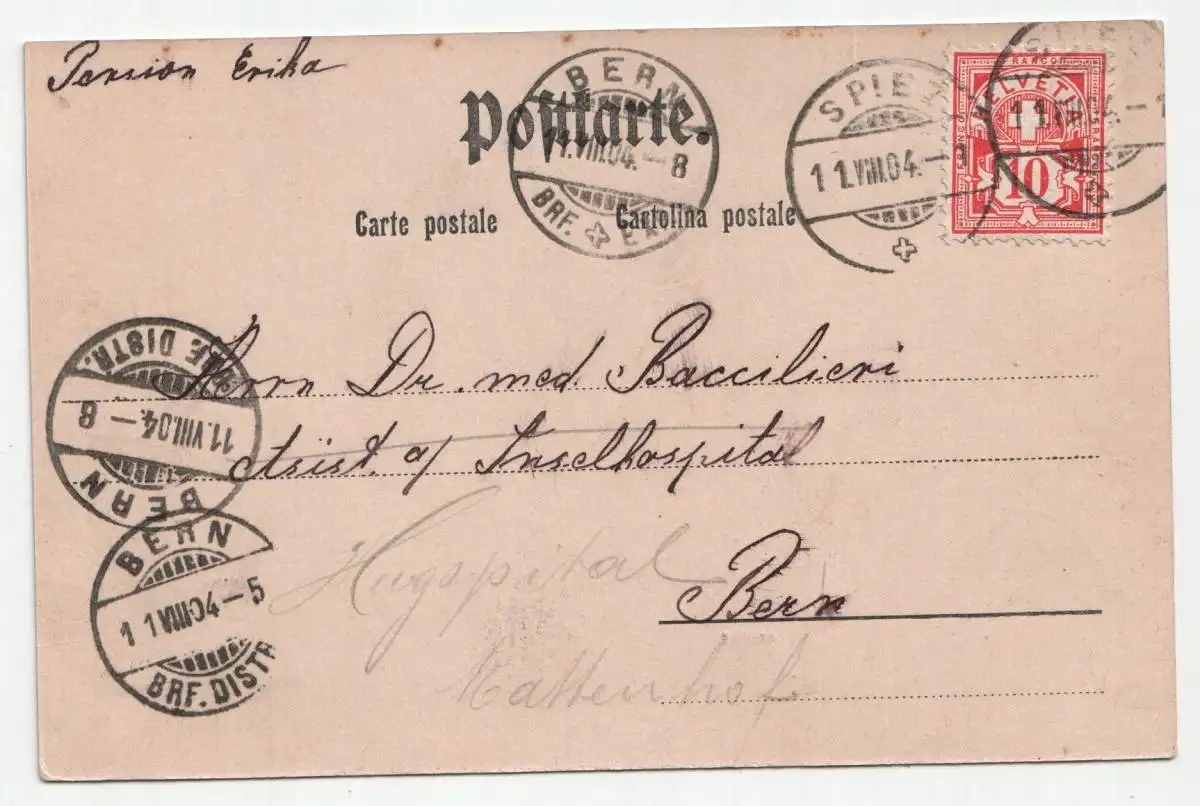 Pension Erika
Postkarte.
Carte postale
Cartolina postale
BERN
11.VIII.04.–8
BRF.
SPIEZ
11.VIII.04.–1
FRANCO
HELVETIA
10
Herrn Dr. med. Baccilieri
Asist. a/ Inselhospital
Bern
Hugspital
Mattenhof
DISTR.
11.VIII.04.–8
BERN
BERN
11VIII04–5
BRF. DISTR